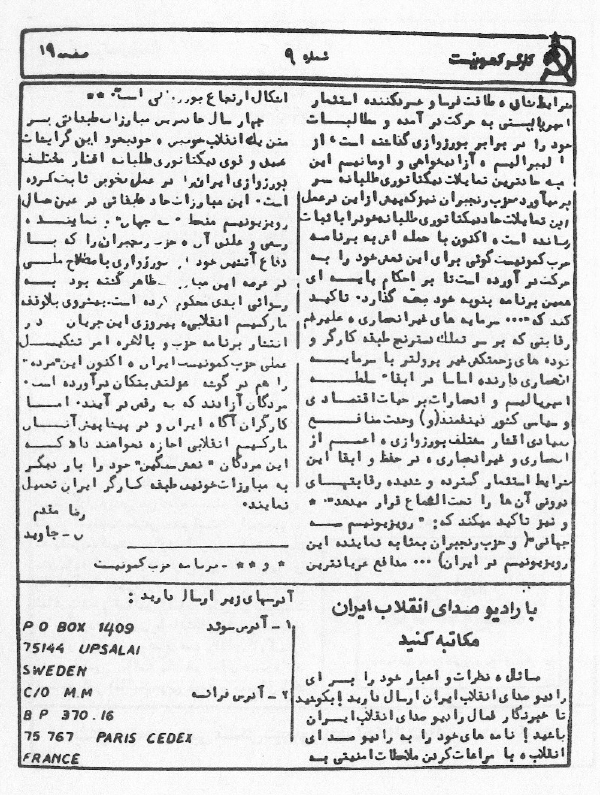 کارگر کمونیست
شماره ۹
صفحه ۱۹
شرایط طاقت فرسا و خردکننده استثمار
امپریالیستی به حرکت در آمده و مطالبات
خود را در برابر بورژوازی گذاشته است، از
لیبرالیسم، آزادیخواهی و اومانیسم این
به حادترین تمایلات دیکتاتوری طلبانه سر
برمیآورد حزب رنجبران نیز که پیش از این در عمل
این تمایلات حاد دیکتاتوری طلبانه خود را باثبات
رسانده است، اکنون با حمله اش به برنامه
حزب کمونیست گوئی برای این نعش خود را به
حرکت در آورده است تا بر احکام پایه ای
همین برنامه بنوبه خود صحه گذارد. تاکید
کند که "... سرمایه های غیر انحصاری، علیرغم
رقابتی که بر سر تملک دسترنج طبقه کارگر و
توده های زحمتکش غیر پرولتر با سرمایه
انحصاری دارند، اساسا در ابقاء سلطه
امپریالیسم و انحصارات بر حیات اقتصادی
و سیاسی کشور ذینفعند (و) وحدت منافع
بنیادی اقشار مختلف بورژوازی، اعم از
انحصاری و غیر انحصاری، در حفظ و ابقا این
شرایط استثمار گسترده و شدید، رقابتهای
درونی آن ها را تحت الشعاع قرار میدهد". *
و نیز تاکید میکند که: "رویزیونیسم سه
جهانی" (و حزب رنجبران بمثابه نماینده این
رویزیونیسم در ایران) ... مدافع عریانترین
اشکال ارتجاع بورژوائی است". **
چهار سال حادترین مبارزات طبقاتی بر
متن یک انقلاب خود بخود این گرایشات
دیکتاتوری طلبانه اقشار مختلف
بورژوازی ایران را در عمل بخوبی ثابت کرده
است. این مبارزات حاد طبقاتی در عین حال
رویزیونیسم منحط "سه جهان"، نماینده
رسمی و علنی آن، حزب رنجبران را که با
دفاع آتشین خود از بورژوازی باصطلاح ملی
در عرصه این مبارزات ظاهر گشته بود به
رسوائی ابدی محکوم کرده است. پیشروی بلاوقفه
مارکسیسم انقلابی، پیروزی این جریان در
انتشار برنامه حزب و بالاخره امر تشکیل
عملی حزب کمونیست ایران، اکنون این "مرده"
را هم در گوشه عزلتش بتکان درآورده است.
مردگان آزادند که به رقص در آیند. اما
کارگران آگاه ایران و در پیشاپیش آنان
مارکسیسم انقلابی اجازه نخواهند داد که
این مردگان "نعش سنگین" خود را بار دیگر
به مبارزات خونین طبقه کارگر ایران تحمیل
نمایند.
رضا مقدم
- جاوید
* و ** - برنامه حزب کمونیست
با رادیو صدای انقلاب ایران
مکاتبه کنید
مسائل، نظرات و اخبار خود را برای
رادیو صدای انقلاب ایران ارسال دارید! بکوشید
تا خبرنگار فعال رادیو صدای انقلاب ایران
باشید! نامه های خود را به رادیو صدای
انقلاب، با مراعات کردن ملاحظات امنیتی به
آدرسهای زیر ارسال دارید:
۱ - آدرس سوئد
P O BOX 1409
75144 UPSALAI
SWEDEN
۲ - آدرس فرانسه
C/O M.M
B P 370.16
75 767 PARIS CEDEX
FRANCE